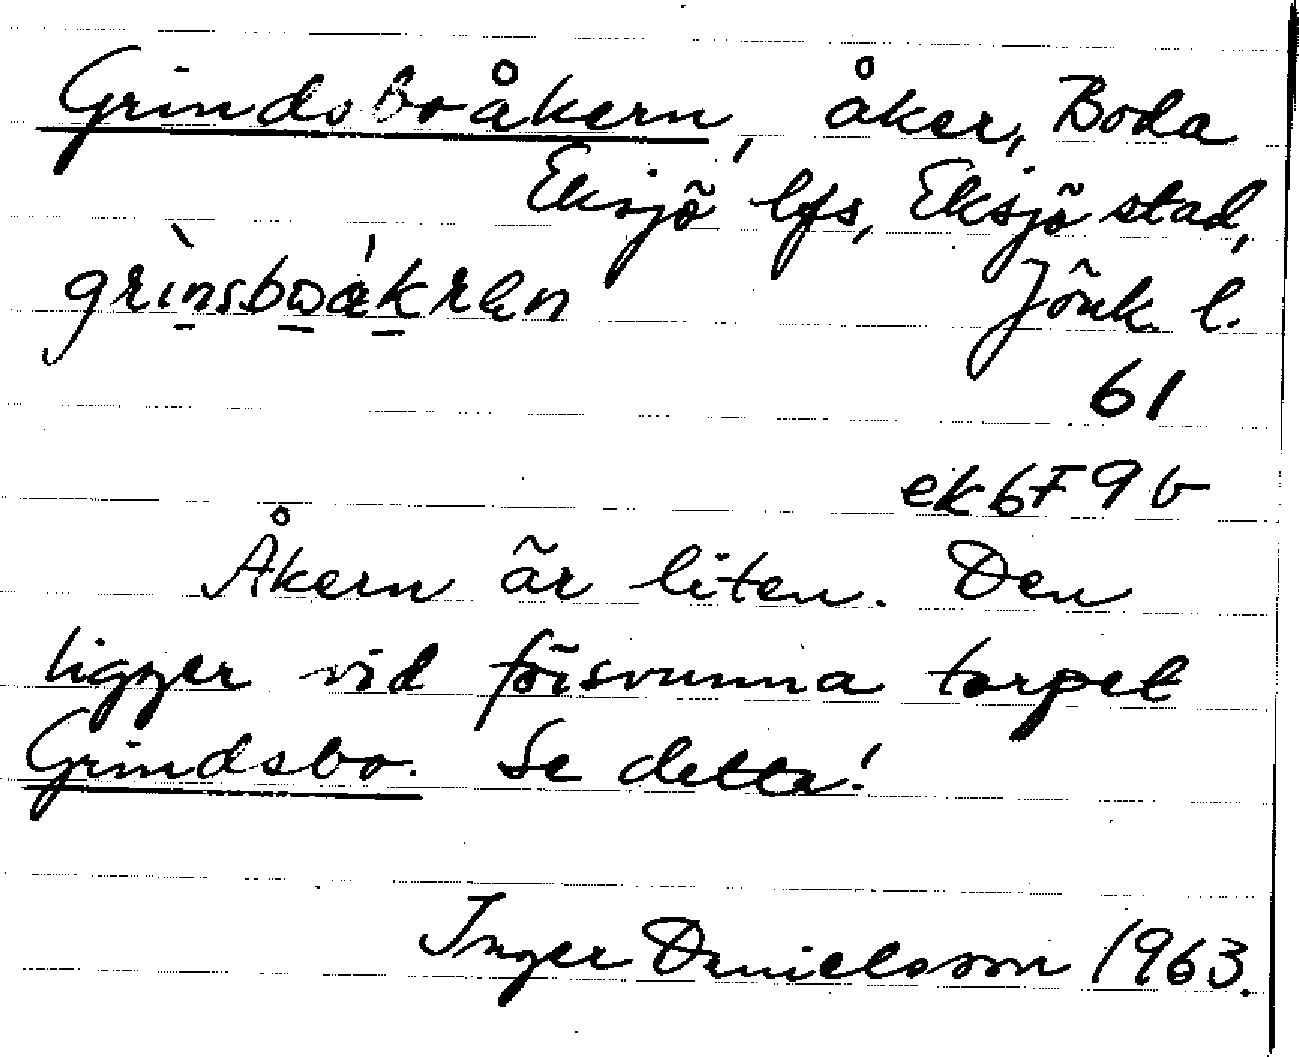 Grindsboåkern, åker, Boda
Eksjö lfs, Eksjö stad,
grinsbωåkren Jönk. l.
61
ek 6F 9 b
Åkern är liten. Den
ligger vid försvunna torpet
Grindsbo. Se detta!
Inger Danielsson 1963.